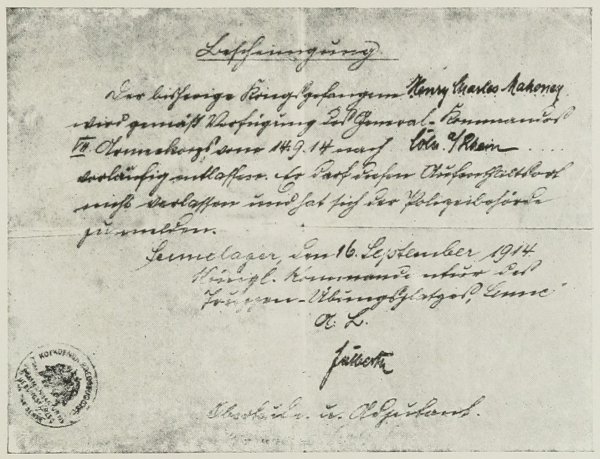 Bescheinigung
Der bisherige Kriegsgefangene Henry Charles Mahoney
wird gemäss Verfügung des General-Kommandos
VII Armeekorps vom 14.9.14 nach Cöln a/Rhein ....
vorläufig entlassen. Er darf diesen Aufenthaltsort
nicht verlassen und hat sich der Polizeibehörde
zu melden.
Sennelager, den 16. September 1914.
Königl. Kommandantur des
Truppen-Übungsplatzes, Senne
A. B.
Oberleutn. u. Adjutant.